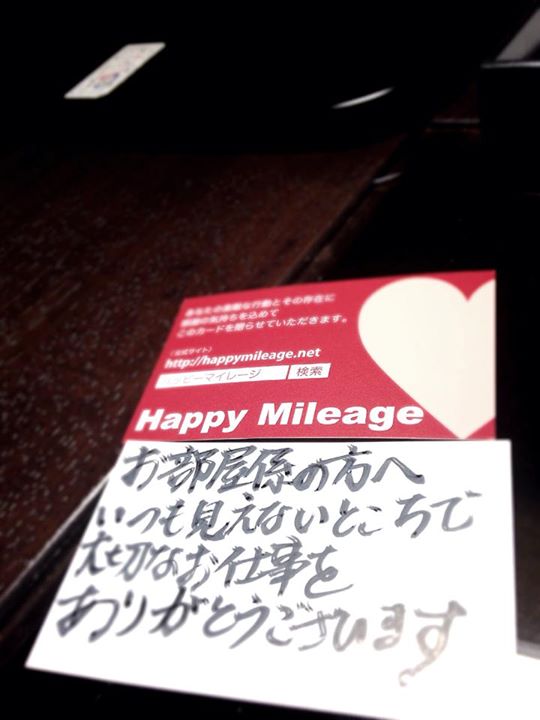 あなたの素敵な行動とその存在に
感動の気持ちを込めて
このカードを贈らせていただきます。
(公式サイト)
http://happymileage.net
ハッピーマイレージ 検索
Happy Mileage
お部屋係の方へ
いつも見えないところで
大切なお仕事を
ありがとうございます